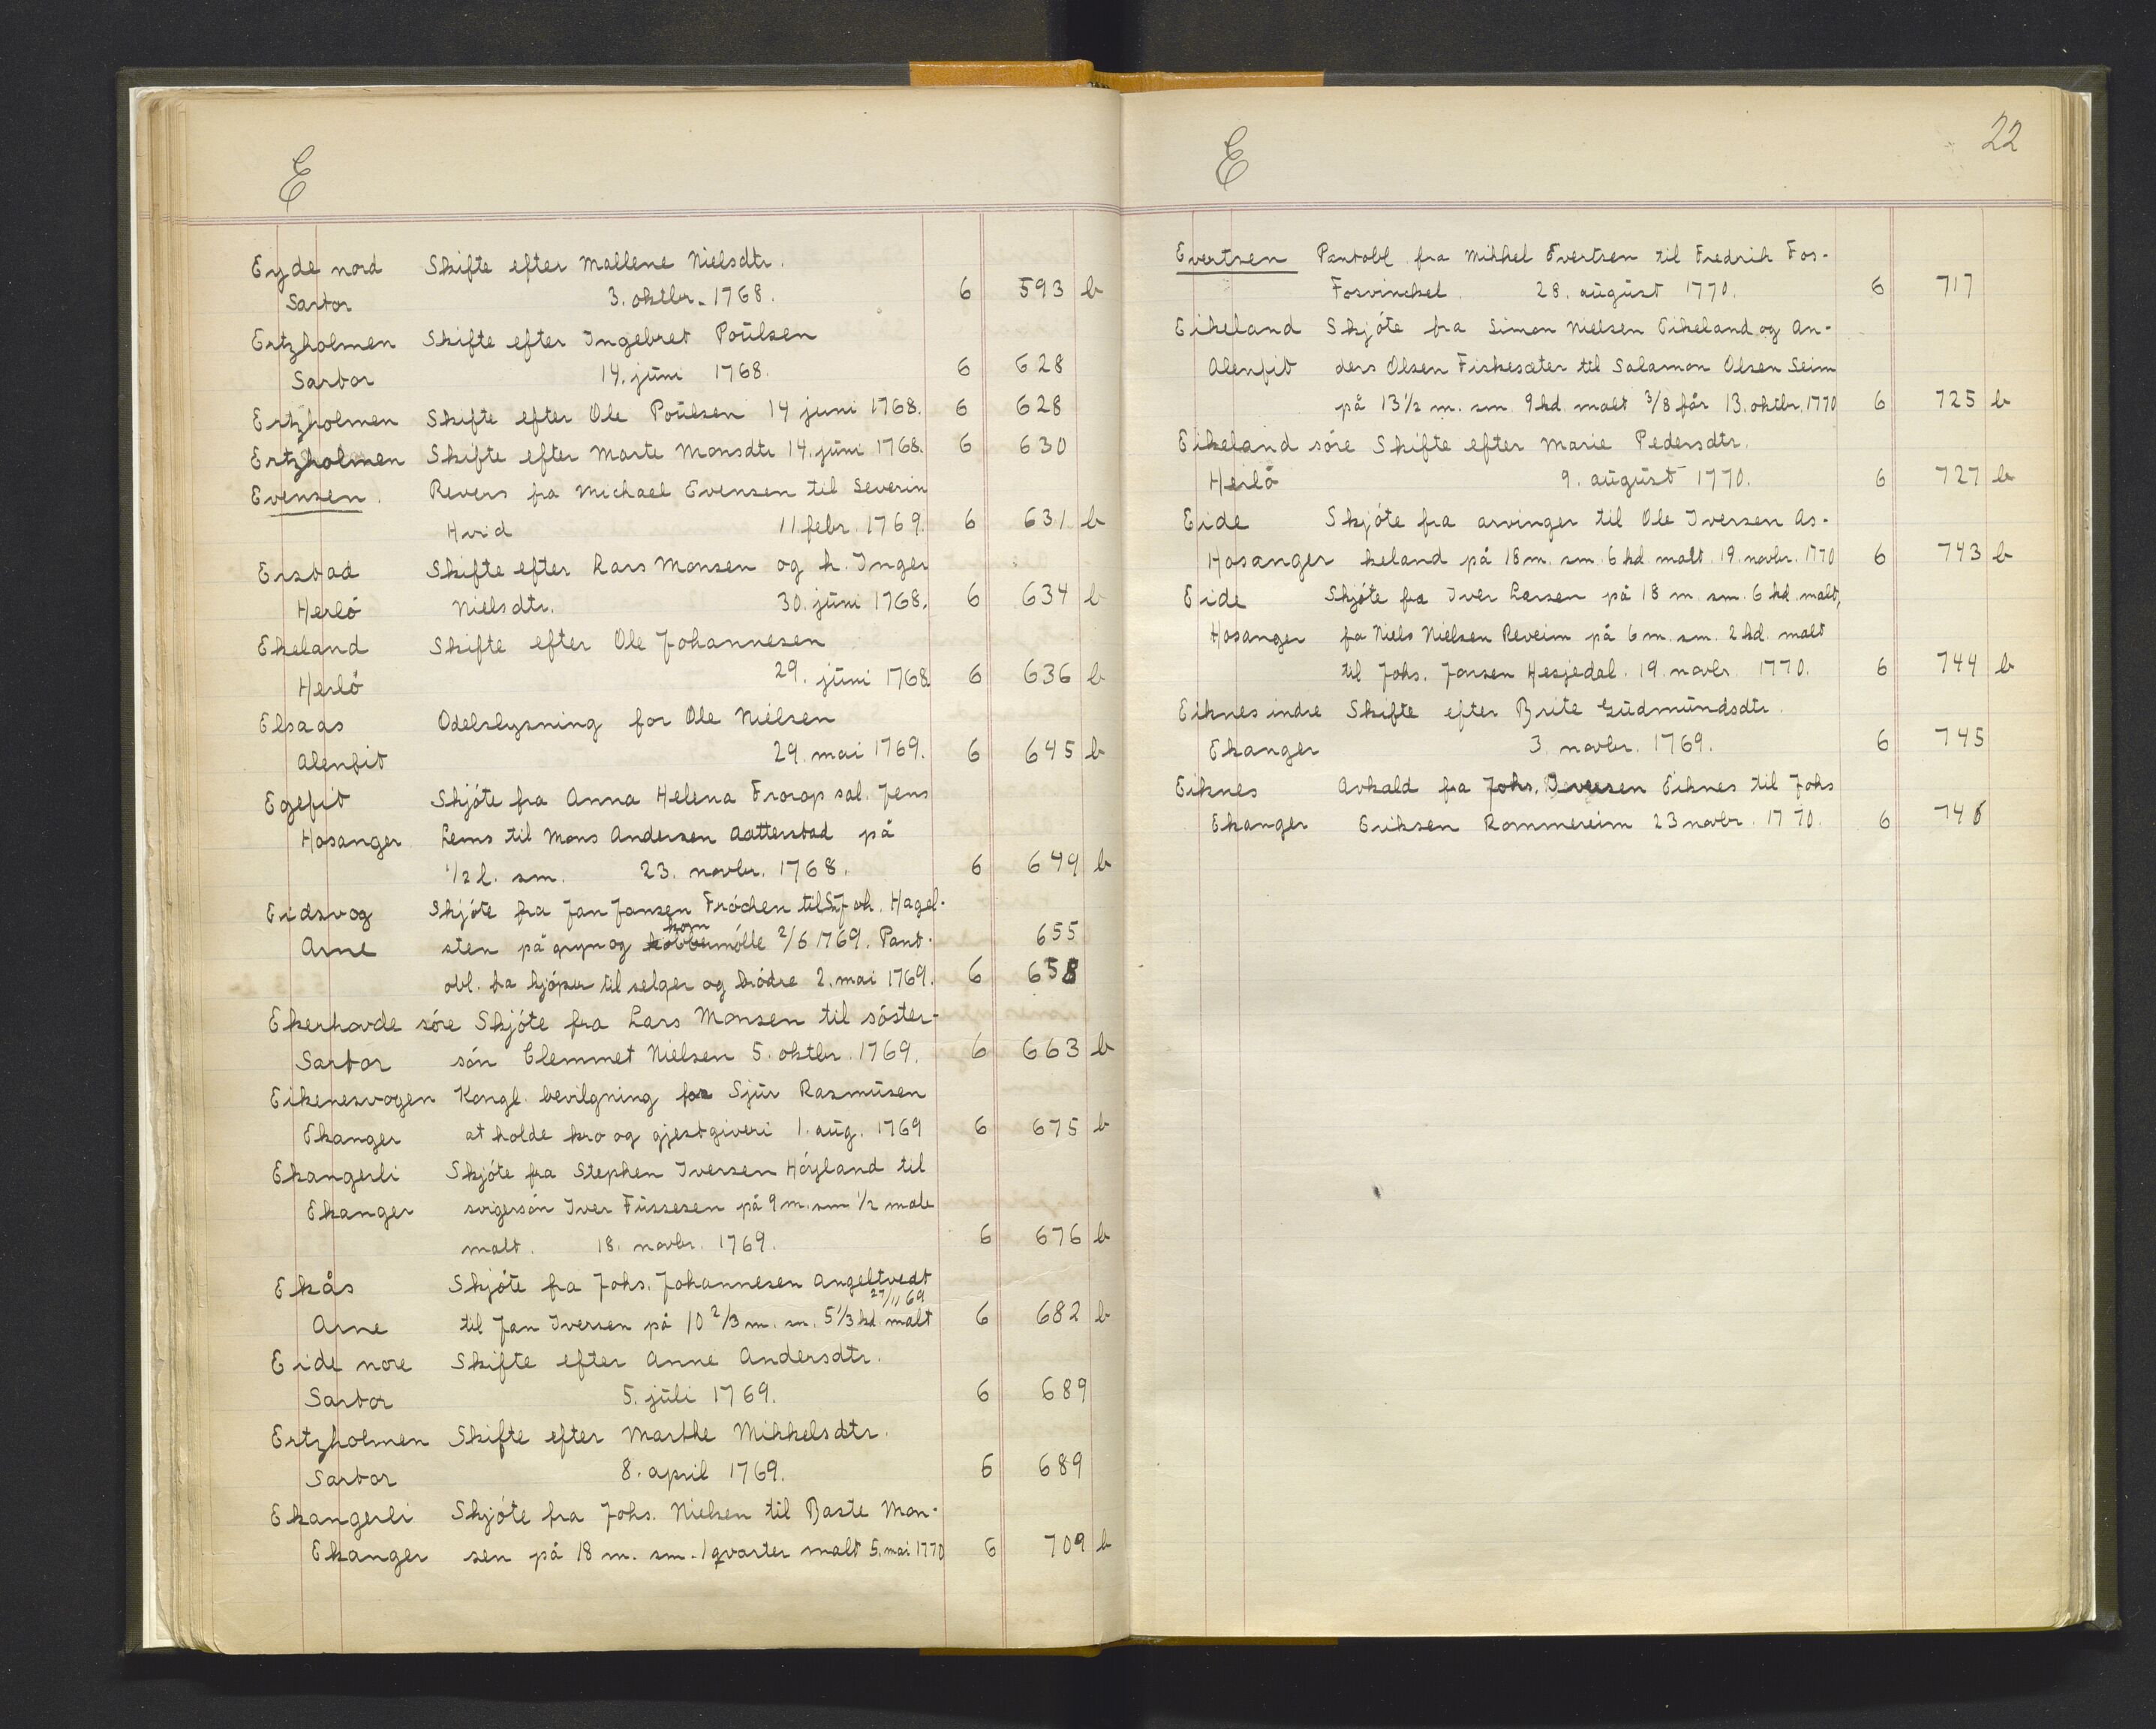 E
Eyde nord Skifte efter Mallene Nielsdtr.
Sartor 3. oktbr. 1768. 6 593 b
Ertzholmen Skifte efter Ingebret Poülsen
Sartor 14. jüni 1768. 6 628
Ertzholmen Skifte efter Ole Poülsen 14 juni 1768. 6 628
Ertzholmen Skifte efter Marte Monsdtr 14. jüni 1768. 6 630
Evensen. Revers fra Michael Evensen til Severin
Hvid 11. febr. 1769. 6 631 b
Erstad Skifte efter Lars Monsen og h. Inger
Herlö Nielsdtr. 30. jüni 1768. 6 634 b
Ekeland Skifte efter Ole Johannesen
Herlö 29. jüni 1768 6 636 b
Elsaas Odelslysning for Ole Nielsen
Alenfit 29. mai 1769. 6 645 b
Egefit Skjöte fra Anna Helena Frorop sal. Jens
Hosanger Lems til Mons Andersen Aatterstad på
1/2 l. sm. 23. novbr. 1768. 6 649 b
Eidsvog Skjöte fra Jan Jansen Fröchen til Joh. Hagel-
Arne sten på gryn og kornmölle 2/6 1769. Pant- 655
obl. fra kjöper til selger og brödre 2. mai 1769. 6 658
Ekerhovde söre Skjöte fra Lars Monsen til söster-
Sartor sön Clemmet Nielsen 5. oktbr. 1769. 6 663 b
Eikenesvogen Kongl. bevilgning for Sjür Rasmüsen
Ekanger at holde kro og gjestgiveri 1. aüg. 1769 6 675 b
Ekangerli Skjöte fra Stephen Iversen Höyland til
Ekanger svigersön Iver Füssesen på 9 m. sm 1/2 male
malt. 18. novbr. 1769. 6 676 b
Ekås Skjöte fra Johs. Johannesen Angeltvedt
27/11 69
Arne til Jan Iversen på 10 2/3 m. sm. 5 1/3 kd. malt 6 682 b
Eide nore Skifte efter Anne Andersdtr.
Sartor 5. jüli 1769. 6 689
Ertzholmen Skifte efter Marthe Mikkelsdtr.
Sartor 8. april 1769. 6 689
Ekangerli Skjöte fra Johs. Nielsen til Baste Mon-
Ekanger sen på 18 m. sm. 1 qvarter malt 5. mai 1770 6 709 b
22
E
Evertsen Pantobl fra Mikkel Evertsen til Fredrik Fos-
Fosvinckel. 28. aügüst 1770. 6 717
Eikeland Skjöte fra Simon Nielsen Eikeland og An-
Alenfit ders Olsen Fiskesæter til Salamon Olsen Seim
på 13 1/2 m. sm 9 kd. malt 3/8 får 13. oktbr. 1770 6 725 b
Eikeland söre Skifte efter Marie Pedersdtr.
Herlö 9. aügüst 1770. 6 727 b
Eide Skjöte fra arvinger til Ole Iversen As-
Hosanger keland på 18 m. sm. 6 kd malt. 19. novbr. 1770 6 743 b
Eide Skjöte fra Iver Larsen på 18 m. sm. 6 kd. malt,
Hosanger fra Niels Nielsen Reveim på 6 m. sm. 2 kd. malt
til Johs. Jonsen Hesjedal. 19. novbr. 1770. 6 744 b
Eiknes indre Skifte efter Brite Güdmündsdtr.
Ekanger 3. novbr. 1769. 6 745
Eiknes Avkald fra Johs. Iversen Eiknes til Johs
Ekanger Eriksen Rommereim 23 novbr. 1770. 6 746